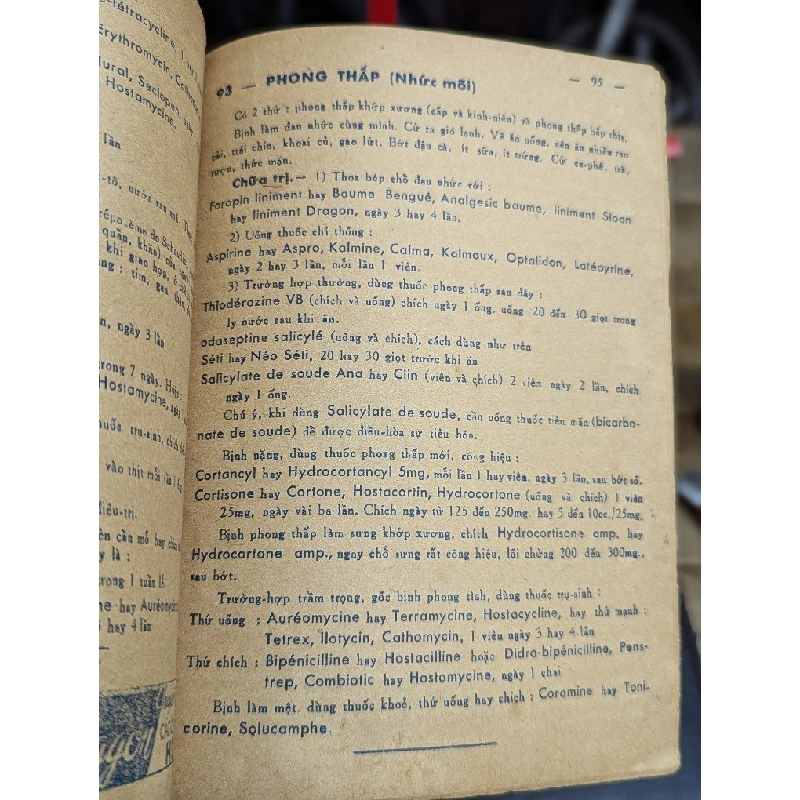 tétracycline, 1
Erythromycin, Cathomy
Hostamycine.
lần
ngày 3 lần
trong 7 ngày.
Hostamycine, ngày
vào thịt mỗi lần 1
liều-trị.
y là :
trong 1 tuần lễ
ne hay Auréomycine
hay 4 lần
93 — PHONG THẤP (Nhức mỏi) — 95 —
Có 2 thứ : phong thấp khớp xương (cấp và kinh-niên) và phong thấp bắp thịt.
Bịnh làm đau nhức cùng mình. Cử ra gió lạnh. Và ăn uống, nên ăn nhiều rau
cải, trái chín, khoai củ, gạo lứt. Bớt đậu cà, ít sữa, ít trứng. Cử cà-phê, trà,
rượu, thức mặn.
Chữa trị.— 1) Thoa bóp chỗ đau nhức với :
Farapin liniment hay Baume Bengué, Analgesic baume, liniment Sloan
hay liniment Dragon, ngày 3 hay 4 lần.
2) Uống thuốc chỉ thống :
Aspirine hay Aspro, Kalmine, Calma, Kalmaux, Optalidon, Latépyrine,
ngày 2 hay 3 lần, mỗi lần 1 viên.
3) Trường hợp thường, dùng thuốc phong thấp sau đây :
Thiodérazine VB (chích và uống) chích ngày 1 ống, uống 20 đến 30 giọt trong
ly nước sau khi ăn.
odaseptine salicylé (uống và chích), cách dùng như trên
Séti hay Néo Séti, 20 hay 30 giọt trước khi ăn
Salicylate de soude Ana hay Clin (viên và chích) 2 viên ngày 2 lần, chích
ngày 1 ống.
Chú ý, khi dùng Salicylate de soude, cần uống thuốc tiêu mặn (bicarbo-
nate de soude) để được điều-hòa sự tiêu hóa.
Bịnh nặng, dùng thuốc phong thấp mới, công hiệu :
Cortancyl hay Hydrocortancyl 5mg, mỗi lần 1 hay viên, ngày 3 lần, sau bớt số.
Cortisone hay Cortone, Hostacortin, Hydrocortone (uống và chích) 1 viên
25mg, ngày vài ba lần. Chích ngày từ 125 đến 250mg. hay 5 đến 10cc./25mg.
Bịnh phong thấp làm sưng khớp xương, chích Hydrocortisone amp. hay
Hydrocortane amp., ngay chỗ sưng rất công hiệu, lối chừng 200 đến 300mg.,
sau bớt.
Trường-hợp trầm trọng, gốc bịnh phong tình, dùng thuốc trụ-sinh :
Thứ uống : Auréomycine hay Terramycine, Hostacycline, hay thứ mạnh :
Tetrex, Ilotycin, Cathomycin, 1 viên ngày 3 hay 4 lần
Thứ chích : Bipénicilline hay Hostacilline hoặc Didro-bipénicilline, Pens-
trep, Combiotic hay Hostamycine, ngày 1 chai
Bịnh làm mệt, dùng thuốc khoẻ, thứ uống hay chích : Coramine hay Toni-
corine, Solucamphe.